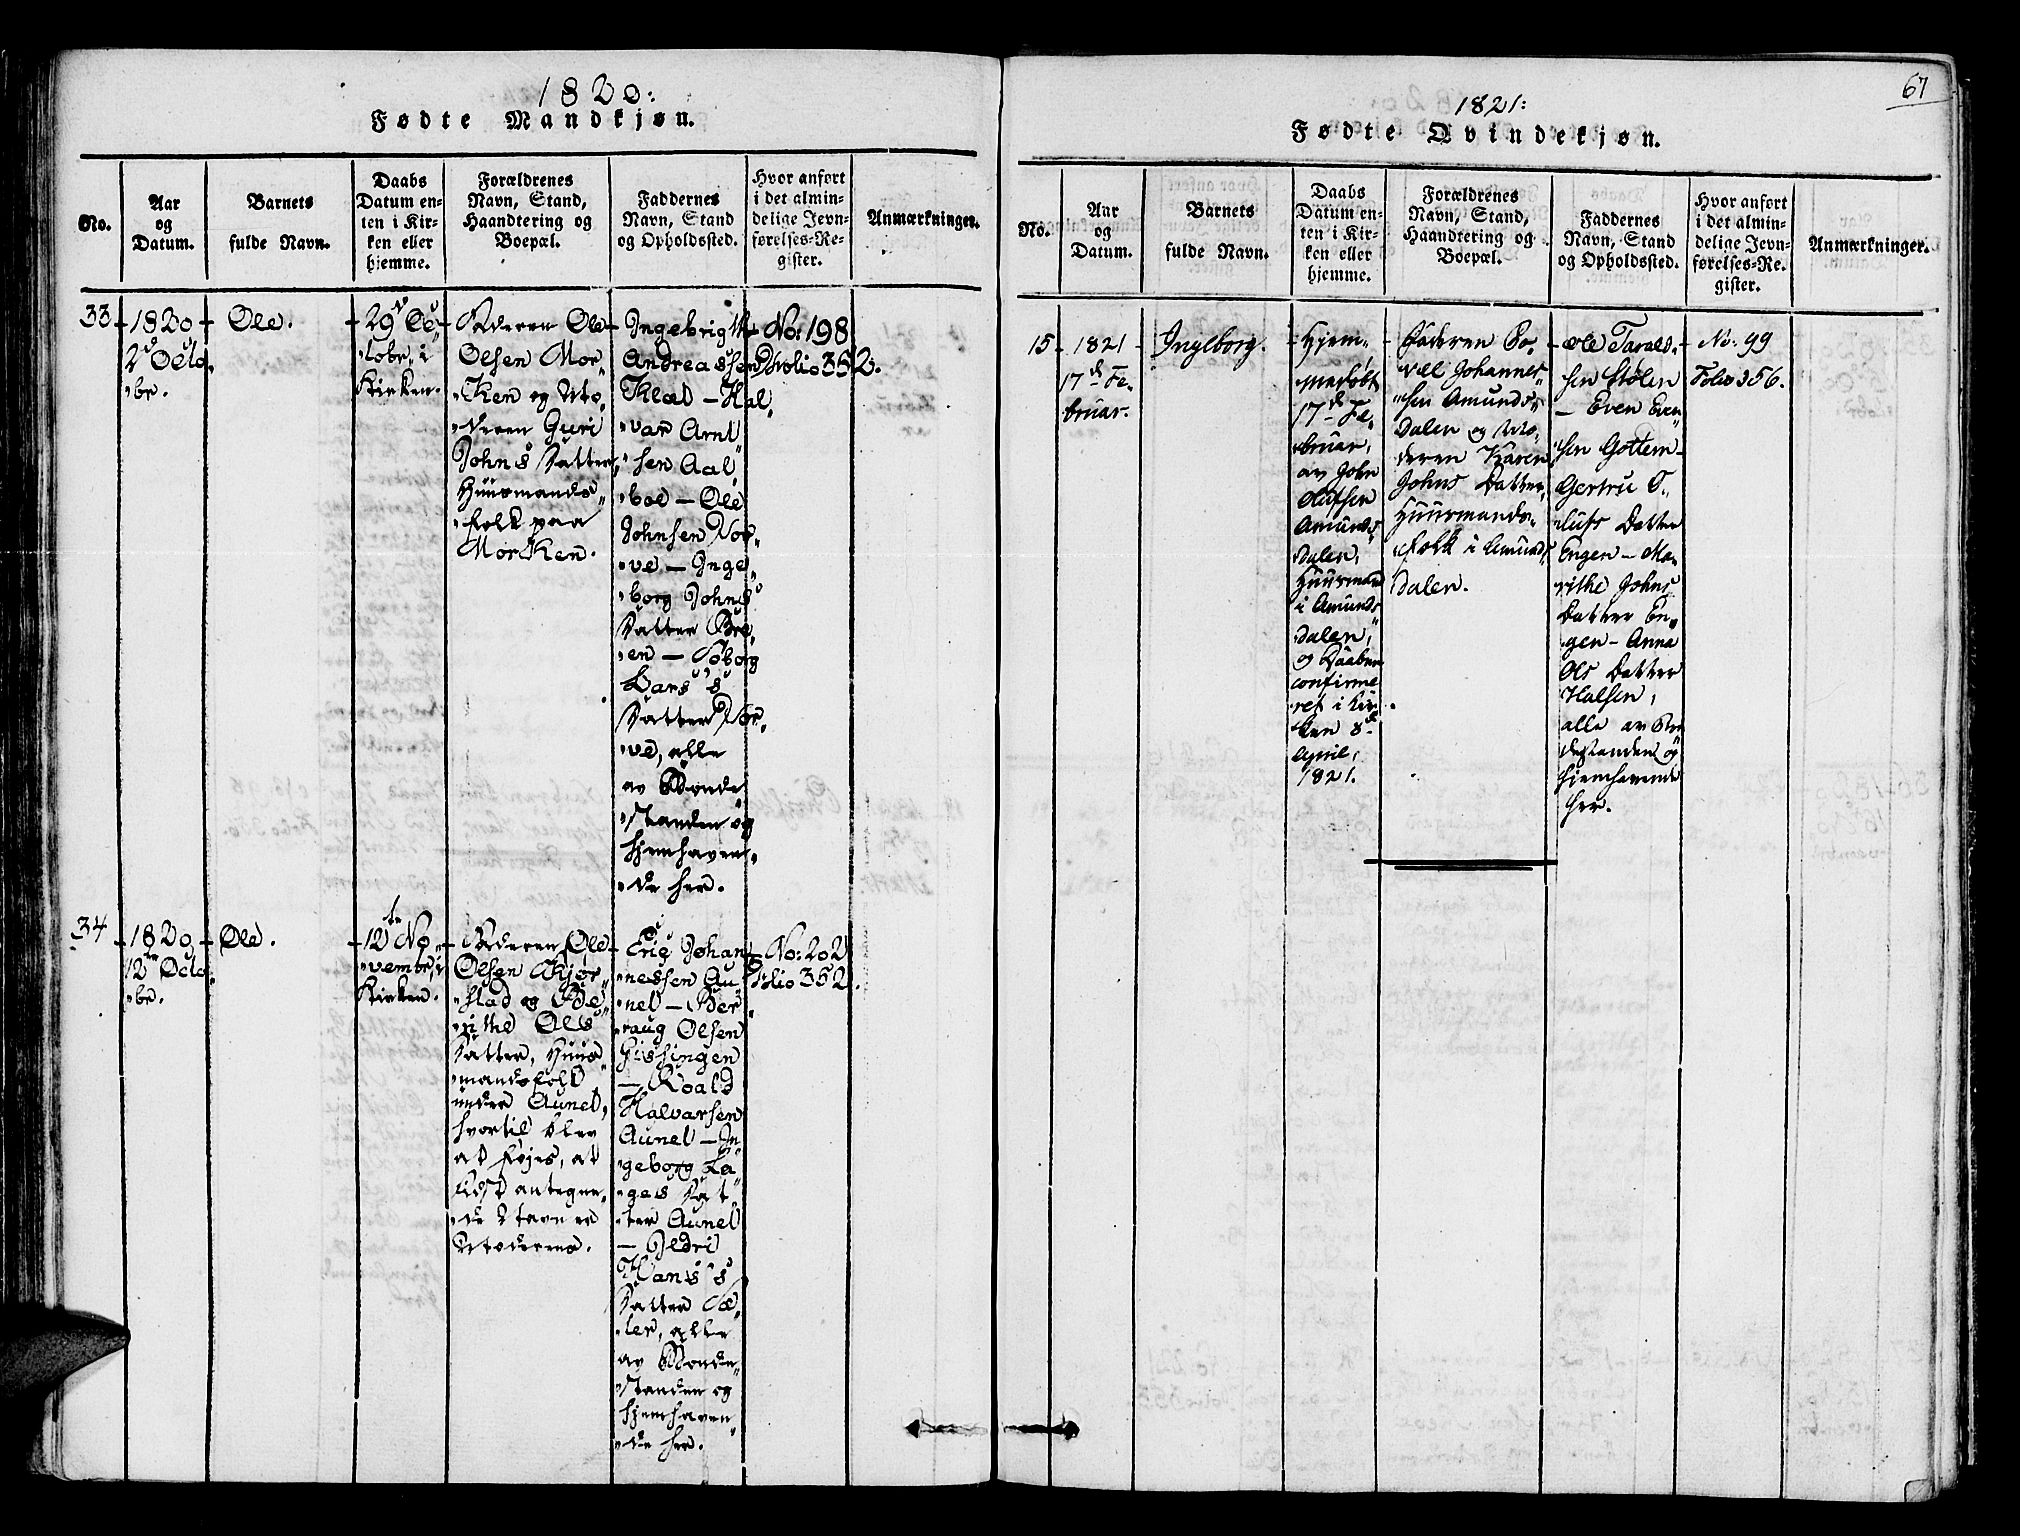 1820:
Fødte Mandkjøn.
No.
Aar
og
Datum.
Barnets
fulde Navn.
Daabs
Datum en-
ten i Kir-
ken eller
hjemme.
Forældrenes
Navn, Stand,
Haandtering og
Boepæl.
Faddernes
Navn, Stand
og Opholdssted.
Hvor anført
i det almin-
delige Jevn-
førelses-Re-
gister.
Anmærkninger.
33
1820
2d Octo
br.
Ole.
29d Oc
tobr. i
Kirken.
Faderen Ole
Olsen Mor
Ken og Mo
deren Guri
Johns Datter
Huusmands
folk paa
MorKen.
Ingebrigt
Andreassen
Klæt – Hal
var Arnt
sen Aal
boe – Ole
Johnsen Nor
ve – Inge
borg Johns
Datter Bre
en –
Lars's
Datter Nor
ve, alle
av Bonde
Standen og
hjemhaven
de her.
No: 198
Pholio 352.
34
1820
12te Octo
br.
Ole.
12te No
vembr i
Kirken.
Faderen Ole
Olsen Kjør
stad og Be
rithe Ols
Datter, Huus
mandsfolk
under Aunet,
hvortil blev
at føjes, at
sidst antegne
de Navn er
Moderens.
Eric Johan
nessen Au
net – Ber
raug Olsen
Gissingen
– Roald
Halvarsen
Aunet – In
geborg La
ges Dat
ter Aunet
– Sedri
Hans's
Datter Sæ
ter, alle
av Bonde
Standen og
hjemhaven
de her.
No: 202
Folio 352.
67
1821:
Fødte Qvindekjøn.
No.
Aar
og
Datum.
Barnets
fulde Navn.
Daabs
Datum en-
ten i Kir-
ken eller
hjemme.
Forældrenes
Navn, Stand,
Haandtering og
Boepæl.
Faddernes
Navn, Stand
og Opholdssted.
Hvor anført
i det almin-
delige Jevn-
førelses-Re-
gister.
Anmærkninger.
15
1821
17d Fe
bruar.
Ingeborg.
Hjem
medøbt
17d Fe
bruar,
av John
Olufsen
Amunds
dalen,
Huusmand
i Amunds
dalen,
og Daaben
confirme
ret i Kir
ken 8d
April,
1821.
Faderen
Johannes
sen Amunds
dalen og Mo
deren Karen
Johns Datter
Huusmands
folk i Amunds
dalen.
Ole Tarald
sen Stølen
– Even Even
sen Gottem
Gertru O
lufs Datter
Engen – Ma
rithe Johns
Datter En
gen – Anna
Ols Datter
Halsen,
alle av Bon
destanden og
hjemhavende
her.
No: 99
Folio 356.